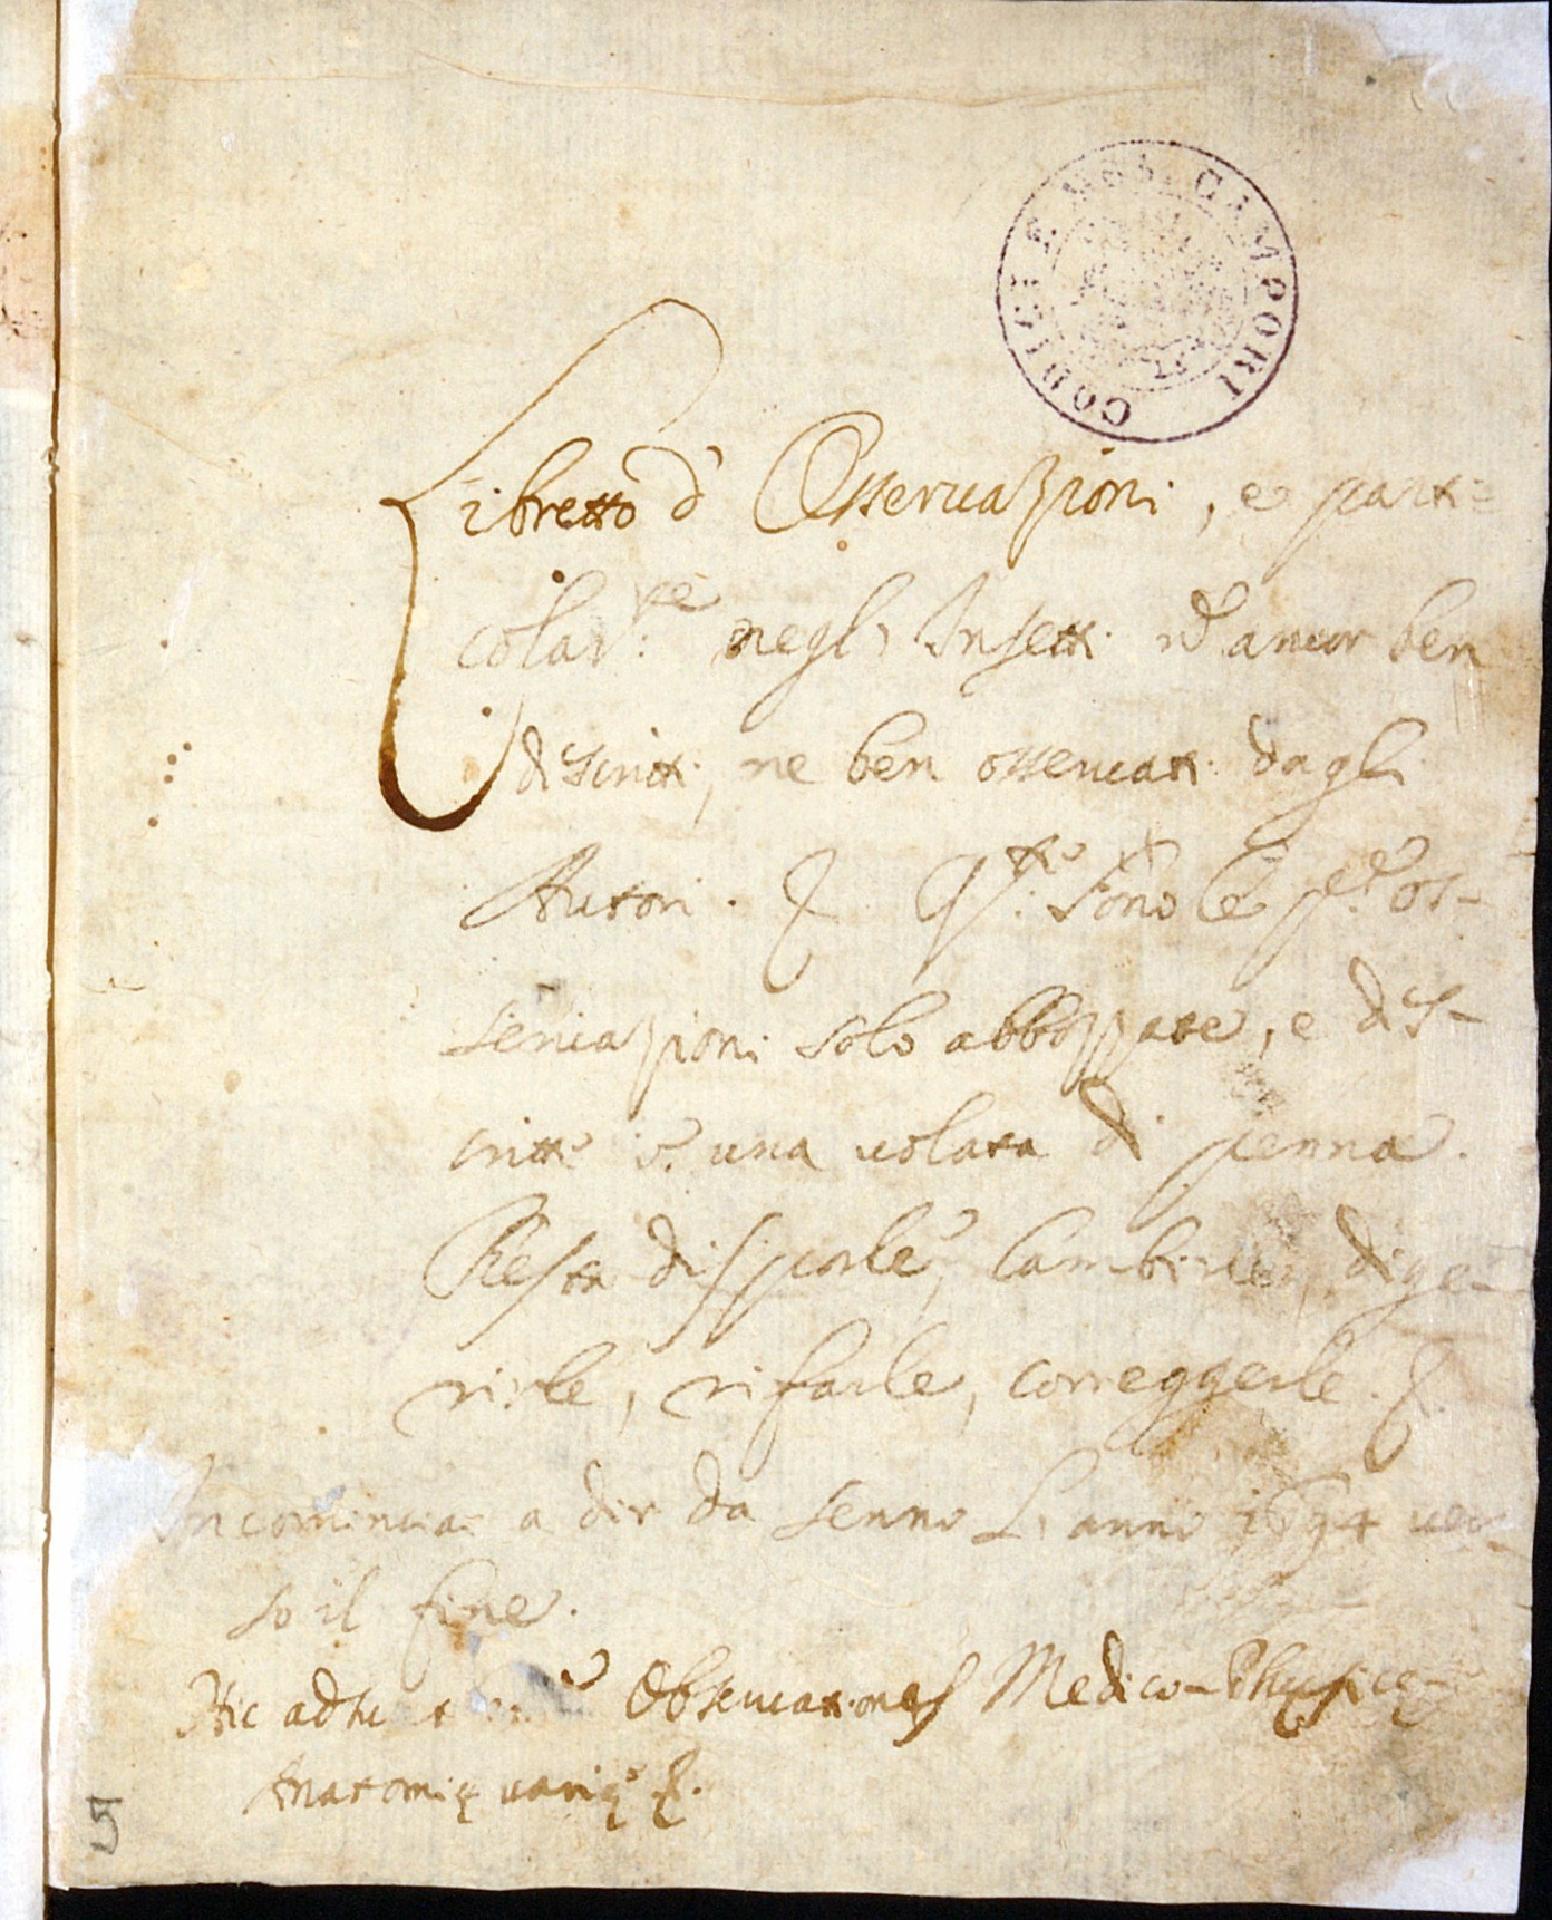 CODICI E MSS. CAMPORI
Libretto d' Osservazioni, e parti=
colar.te negl' Insetti nõ ancor ben
discritti, ne ben osservati dagli
Autori. &. Q.te sono le p.e os-
servazioni solo abbozzate, e dis-
critte ĩ una volata di penna.
Resta disporle, cambiarle, dige-
rirle, rifarle, correggerle. &.
Incominciai a dir da senno L' anno 1694 ver-
so il fine.
Hic adhuc Observationes Medico-Physicę-
Anatomię varię &.
5